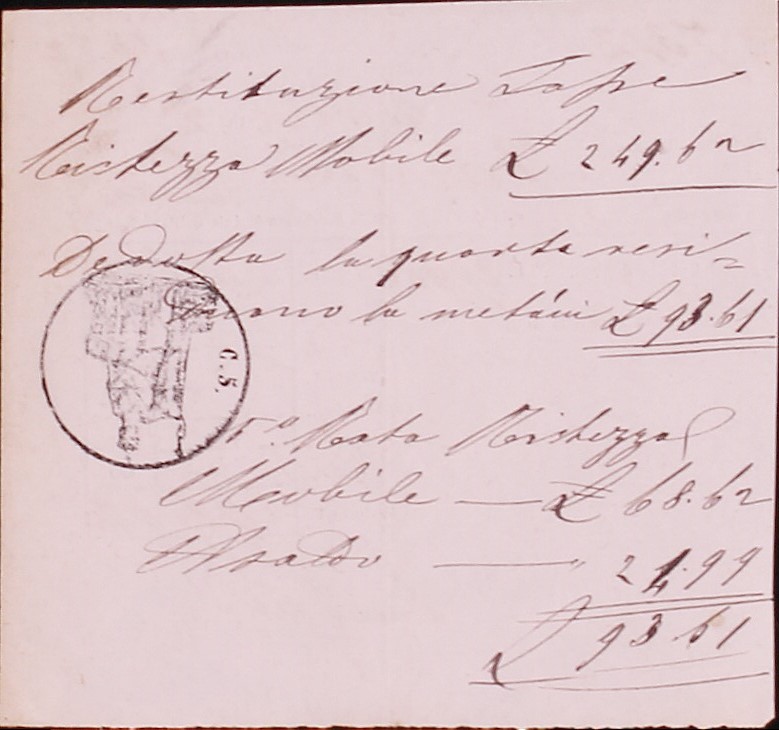 Restituzione Tasse
Richezza Mobile £ 249.62
Dedotta la quarta resi-
duano la metà in £ 93.61
C.S.
5.ª Rata Richezza
Mobile — £ 68.62
A Saldo — " 24.99
£ 93.61